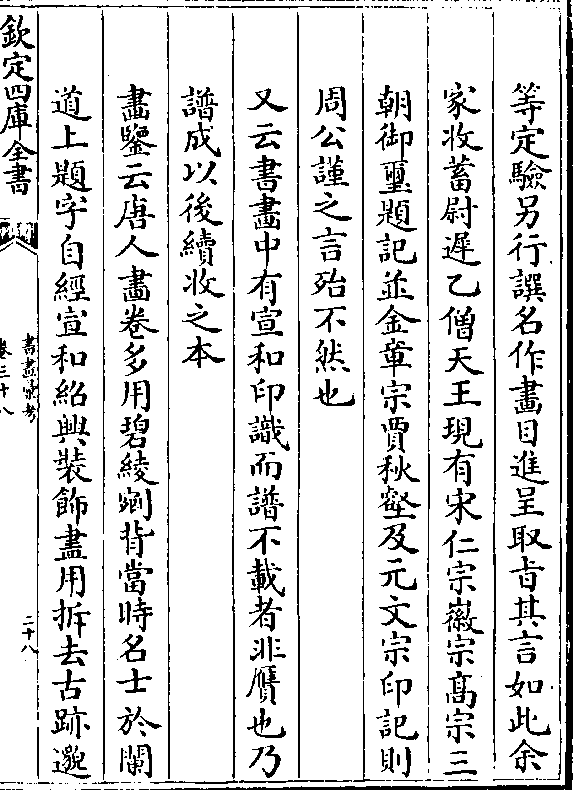 等定驗另行譔名作畫目進呈取㫖其言如此余
家收蓄尉遲乙僧天王現有宋仁宗徽宗髙宗三
朝御璽題記並金章宗賈秋壑及元文宗印記則
周公謹之言殆不然也
又云書畫中有宣和印識而譜不載者非贋也乃
譜成以後續收之本
畵鑒云唐人畵卷多用碧綾剜背當時名士於闌
道上題字自經宣和紹興裝飾盡用拆去古跡邈
欽定四庫全書
書畵彚考
卷三十八
二十八